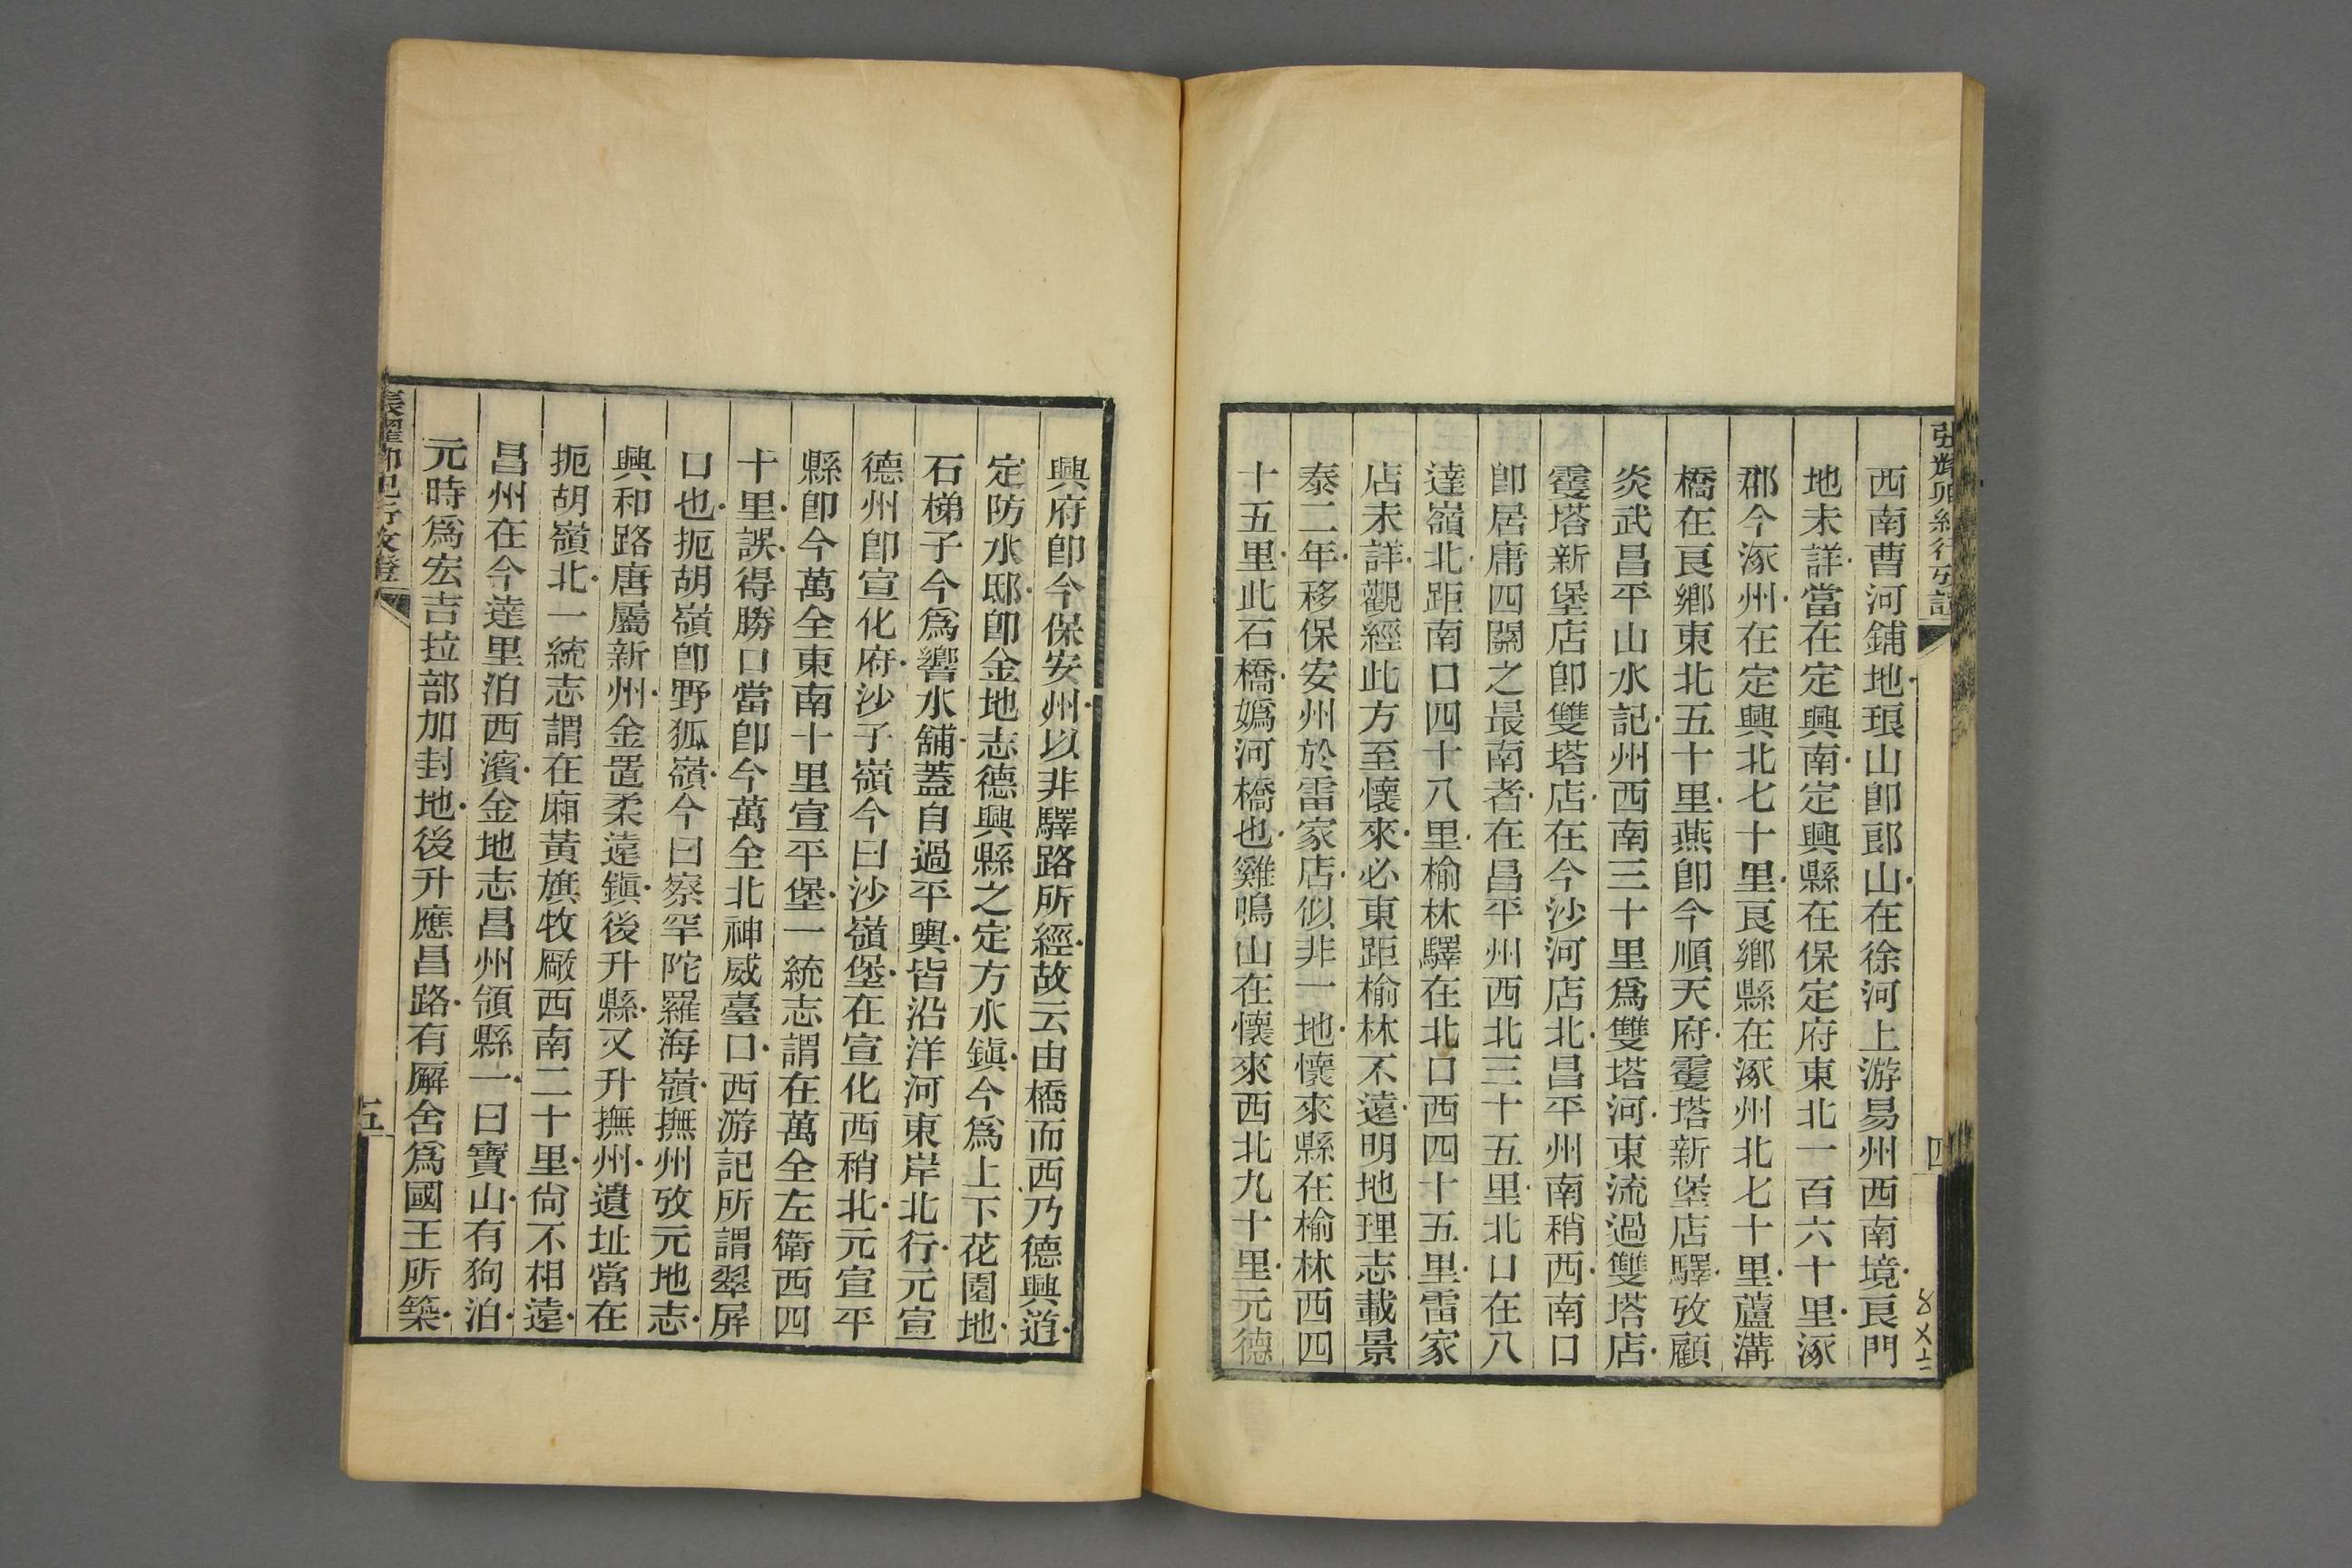 西南曹河鋪地琅山卽郞山在徐河上游易州西南境良門
地未詳當在定興南定興縣在保定府東北一百六十里涿
郡今涿州在定興北七十里良鄕縣在涿州北七十里蘆溝
橋在良鄕東北五十里燕卽今順天府䨥塔新堡店驛攷顧
炎武昌平山水記州西南三十里爲雙塔河東流過雙塔店
䨥塔新堡店卽雙塔店在今沙河店北昌平州南稍西南口
卽居庸四關之最南者在昌平州西北三十五里北口在八
達嶺北距南口四十八里榆林驛在北口西四十五里雷家
店未詳觀經此方至懷來必東距榆林不遠明地理志載景
泰二年移保安州於雷家店似非一地懷來縣在榆林西四
十五里此石橋媯河橋也雞鳴山在懷來西北九十里元德
四
興府卽今保安州以非驛路所經故云由橋而西乃德興道
定防水邸卽金地志德興縣之定方水鎭今爲上下花園地
石梯子今爲響水舖蓋自過平輿皆沿洋河東岸北行元宣
德州卽宣化府沙子嶺今曰沙嶺堡在宣化西稍北元宣平
縣卽今萬全東南十里宣平堡一統志謂在萬全左衛西四
十里誤得勝口當卽今萬全北神威臺口西游記所謂翠屛
口也扼胡嶺卽野狐嶺今曰察罕陀羅海嶺撫州攷元地志
興和路唐屬新州金置柔遠鎭後升縣又升撫州遺址當在
扼胡嶺北一統志謂在廂黃旗牧廠西南二十里尙不相遠
昌州在今達里泊西濱金地志昌州領縣一曰寶山有狗泊
元時爲宏吉拉部加封地後升應昌路有廨舍爲國王所築
五